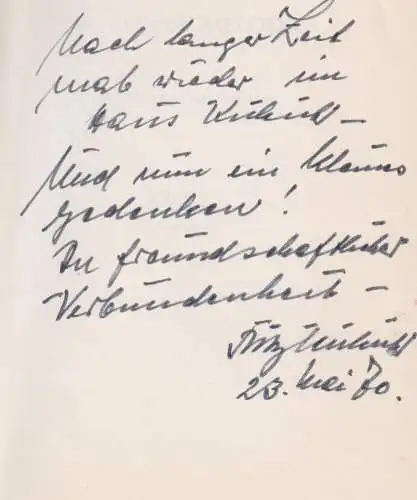 Nach langer Zeit
mal wieder im
Haus Kuhnt –
Und nun ein kleines
Gedenken!
In freundschaftlicher
Verbundenheit –
Fritz
23. Mai 70.